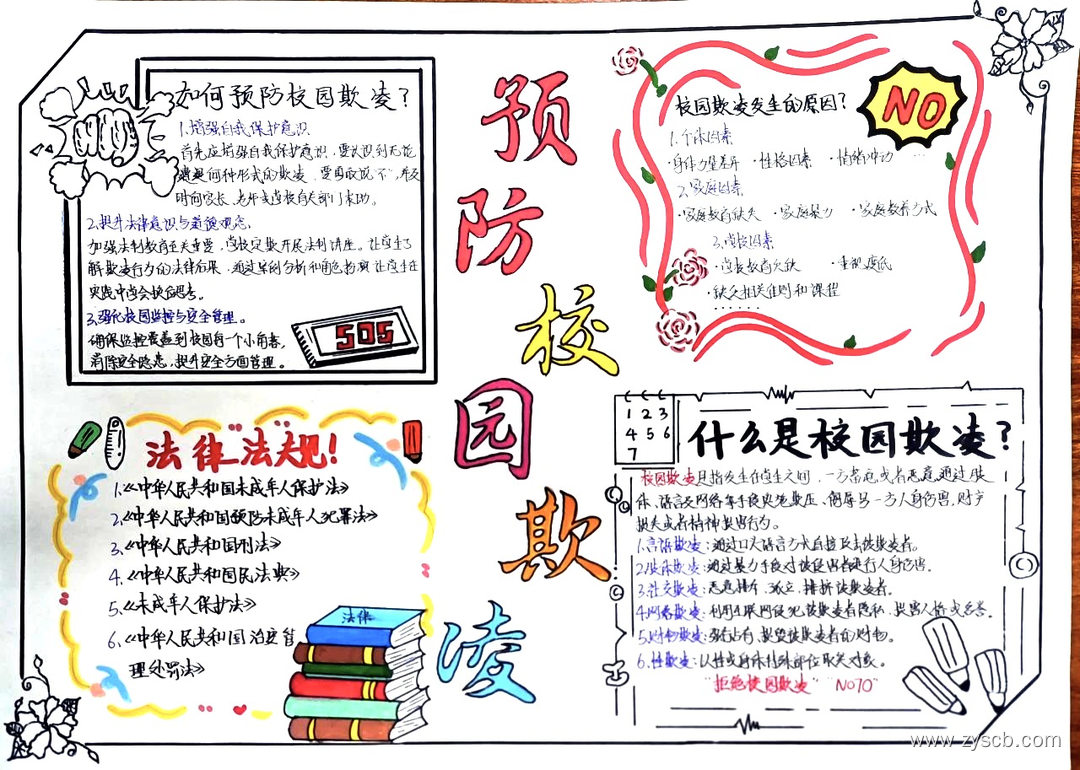 预防校园欺凌
如何预防校园欺凌？
1.增强自我保护意识
首先应增强自我保护意识，要认识到无论
遭遇何种形式的欺凌，要勇敢说"不"，并及
时向家长、老师或学校有关部门求助。
2.提升法律意识与道德观念。
加强法制教育至关重要，学校定期开展法制讲座。让学生了
解欺凌行为的法律后果，通过案例分析和角色扮演让学生在
实践中学会换位思考。
3.强化校园监控与安全管理。
确保监控覆盖到校园每一个小角落，
消除安全隐患，提升安全方面管理。
SOS
校园欺凌发生的原因？
NO
1.个体因素
·身体力量差异 ·性格因素 ·情绪冲动 ...
2.家庭因素
·家庭教育缺失 ·家庭暴力 ·家庭教养方式
3.学校因素
·学校教育欠缺 ·重视度低
·缺少相关准则和课程
......
法律"法"大吧！
1.《中华人民共和国未成年人保护法》
2.《中华人民共和国预防未成年人犯罪法》
3.《中华人民共和国刑法》
4.《中华人民共和国民法典》
5.《未成年人保护法》
6.《中华人民共和国治安管
理处罚法》
法律
1 2 3
4 5 6
7
什么是校园欺凌？
校园欺凌是指发生在学生之间，一方蓄意或者恶意通过肢
体、语言及网络等手段实施欺压、侮辱另一方人身伤害，财产
损失或者精神损害行为。
1.言语欺凌：通过口头语言方式直接攻击被欺凌者。
2.肢体欺凌：通过暴力手段对该受害者进行人身伤害。
3.社交欺凌：恶意排斥、孤立、排挤该欺凌者。
4.网络欺凌：利用互联网侵犯被欺凌者隐私、损害人格或名誉。
5.财物欺凌：强行占有、损毁被欺凌者的财物。
6.性欺凌：以性或身体特殊部位取笑对象。
"拒绝校园欺凌" "NO70"
www.zyscb.com